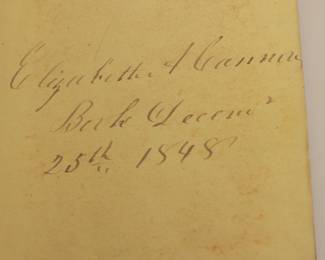 Elizabeth A Cannon
Book Decemr
25th 1848